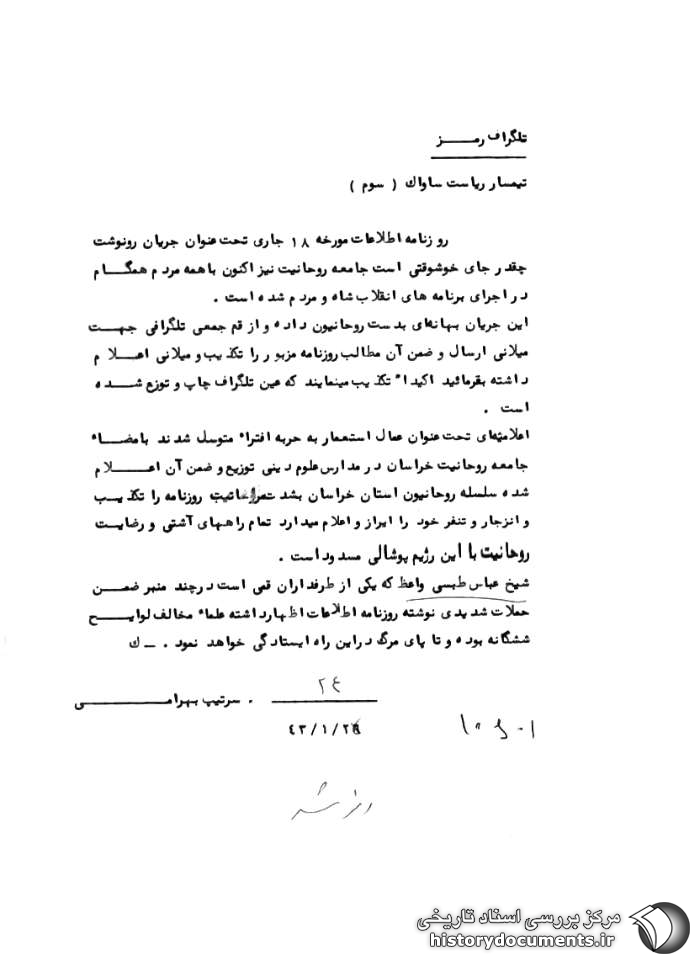 تلگراف رمز
تیمسار ریاست ساواک ( سوم )
روزنامه اطلاعات مورخه ۱۸ جاری تحت عنوان جریان رونوشت
چقدر جای خوشوقتی است جامعه روحانیت نیز اکنون با همه مردم همگام
در اجرای برنامه های انقلاب شاه و مردم شده است .
این جریان بهانه‌ای بدست روحانیون داده و از قم جمعی تلگرافی جهت
میلانی ارسال و ضمن آن مطالب روزنامه مزبور را تکذیب و میلانی اعلام
داشته بقرمائید اکیداً تکذیب مینمایند که عین تلگراف چاپ و توزع شده
است .
اعلامیه‌ای تحت عنوان عمال استعمار به حربه افتراء متوسل شدند بامضاء
جامعه روحانیت خراسان در مدارس علوم دینی توزیع و ضمن آن اعلام
شده سلسله روحانیون استان خراسان بشدت روزنامه را تکذیب
و انزجار و تنفر خود را ابراز و اعلام میدارد تمام راههای آشتی و رضایت
روحانیت با این رژیم پوشالی مسدود است .
شیخ عباس طبسی واعظ که یکی از طرفداران قمی است در چند منبر ضمن
حملات شدیدی نوشته روزنامه اطلاعات اظهار داشته علماء مخالف لوایح
ششگانه بوده و تا پای مرگ در این راه ایستادگی خواهد نمود . ـ ک
۲۴
. سرتیپ بهرامی
۴۳/۱/۲۵
رمز شد
مرکز بررسی اسناد تاریخی
historydocuments.ir